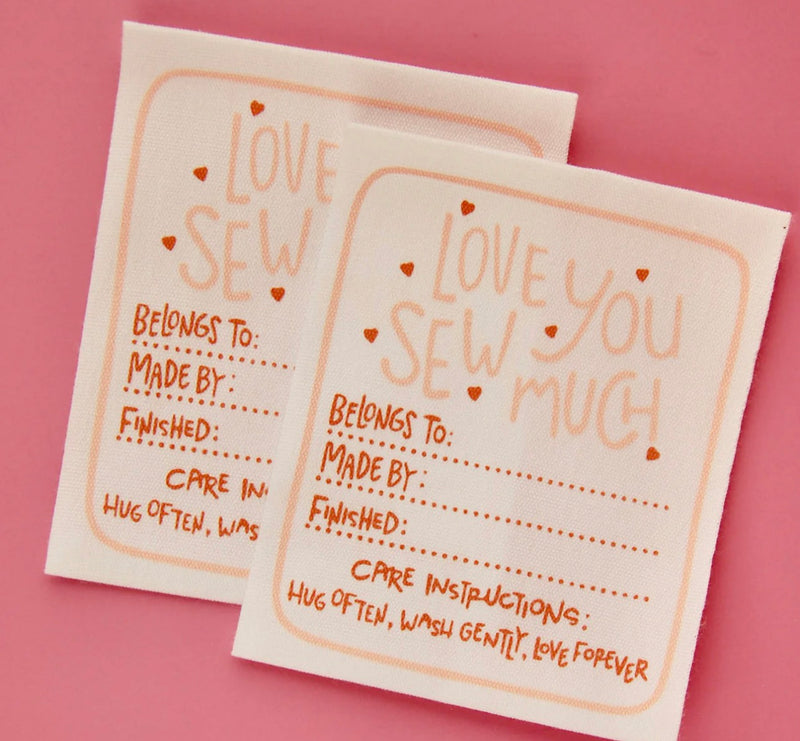 LOVE
SEW
BELONGS TO:
MADE BY:
FINISHED:
CARE
HUG OFTEN,
LOVE YOU
SEW MUCH
BELONGS TO:
MADE BY:
FINISHED:
CARE INSTRUCTIONS:
HUG OFTEN, WASH GENTLY, LOVE FOREVER